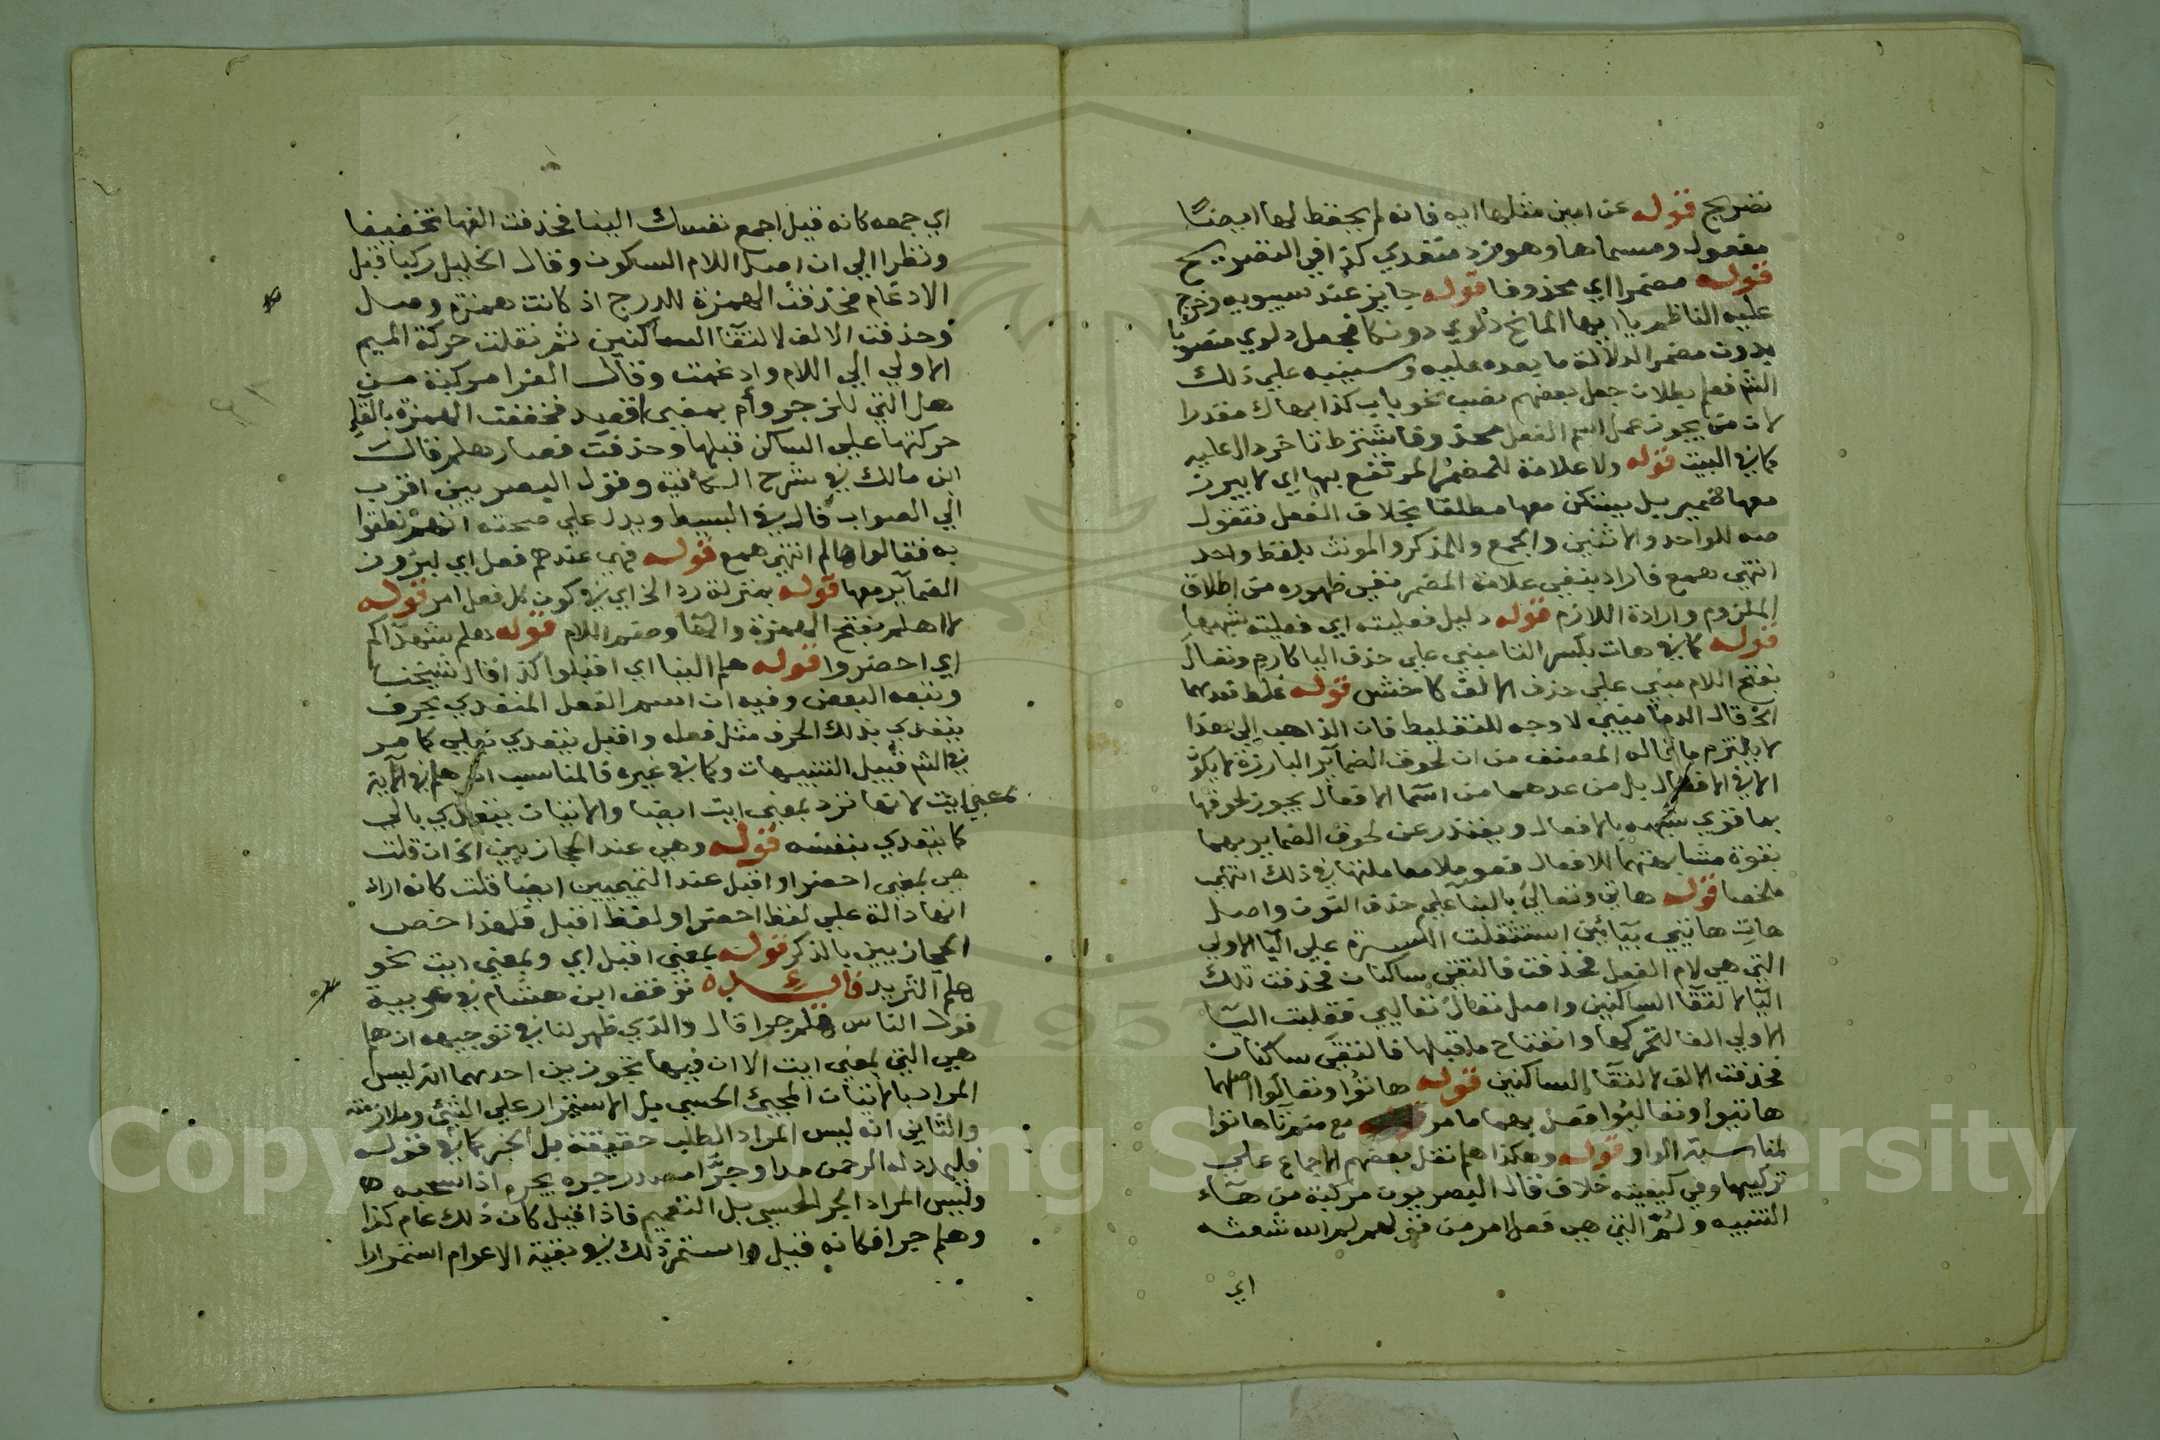 تصريح قوله عن امين مثلها ايه فانه لم يحفظ لها ايضًا
مفعول ومسماها وهو زد متعدي كذا في التصريح
قوله مضمرا اي محذوفا قوله جايز عند سيبويه وخرج
عليه الناظم يا ايها المائح دلوي دونكا فجعل دلوي منصوبا
بدون مضمر الدلالة ما بعده عليه وسينبه علي ذلك
الشم فعلم بطلان جعل بعضهم نصب نحو باب كذا بهاك مقدرا
لان من يجوز عمل اسم الفعل محذوفا يشترط تاخر دال عليه
كما في البيت قوله ولا علامة للمضمر المرتفع بها اي لا يبرز
معها ضمير بل يستكن معها مطلقا بخلاف الفعل فتقول
صه للواحد والاثنين والجمع وللمذكر والمونث بلفظ واحد
انتهي همع فاراد بنفي علامة المضمر نفي ظهوره من اطلاق
الملزوم وارادة اللازم قوله دليل فعليته اي فعليته شبهها
قوله كما في هات بكسر التا مبني علي حذف اليا كارم وتعال
بفتح اللام مبني علي حذف الالف كاخش قوله غلط تعدهما
الخ قال الدماميني لا وجه للتغليط فان الذاهب الي هذا
لا يلتزم ما قاله المصنف من ان لحوق الضماير البارزة لا يكون
الا في الافعال بل من عدهما من اسما الافعال يجوز لحوقها
بما قوي شبهه بالافعال ويعتذر عن لحوق الضماير بهما
بقوة مشابهتهما للافعال فعوملا معاملتها في ذلك انتهي
ملخصا قوله هاتي وتعالي بالبنا علي حذف النون واصل
هاتي هاتيي بيائين استثقلت الكسرة علي اليا الاولي
التي هي لام الفعل فحذفت فالتقي ساكنان فحذفت تلك
اليا لالتقا الساكنين واصل تعالي تعاليي فقلبت اليا
الاولي الفا لتحركها وانفتاح ما قبلها فالتقي ساكنان
فحذفت الالف لالتقا الساكنين قوله هاتوا وتعالوا اصلهما
هاتيوا وتعاليوا فعل بهما ما مر مع ضم تا هاتوا
لمناسبة الواو قوله وهكذا هلم نقل بعضهم الاجماع علي
تركيبها وفي كيفيته خلاف قال البصريون مركبة من هاء
التنبيه ولم التي هي فعل امر من قولهم لم الله شعثه
اي
اي جمعه كانه قيل اجمع نفسك الينا فحذفت الفها تخفيفا
ونظرا الي ان اصل اللام السكون وقال الخليل ركبا قبل
الادغام فحذفت الهمزة للدرج اذ كانت همزة وصل
وحذفت الالف لالتقا الساكنين ثم نقلت حركة الميم
الاولي الي اللام وادغمت وقال الفرا مركبة من
هل التي للزجر وأم بمعني اقصد فخففت الهمزة بالقاء
حركتها علي الساكن قبلها وحذفت فصار هلم قال
ابن مالك في شرح الكافية وقول البصريين اقرب
الي الصواب قال في البسيط ويدل علي صحته انهم نطقوا
به فقالوا هالم انتهي همع قوله فهي عندهم فعل اي لبروز
الضماير معها قوله بمنزلة رد الخ اي في كون كل فعل امر قوله
لا اهلم بفتح الهمزة والها وضم اللام قوله هلم شهداكم
اي احضروا قوله هلم الينا اي اقبلوا كذا قال شيخنا
وتبعه البعض وفيه ان اسم الفعل المتعدي بحرف
يتعدي بذلك الحرف مثل فعله واقبل يتعدي بعلي كما مر
في الشم قبيل التنبيهات وكما في غيره فالمناسب ان هلم في الآية
بمعني ايت لانها ترد بمعني ايت ايضا والاتيان يتعدي بالي
كما يتعدي بنفسه قوله وهي عند الحجازيين الخ ان قلت
هي بمعني احضر او اقبل عند التميميين ايضا قلت كانه اراد
انها دالة علي لفظ احضر او لفظ اقبل فلهذا خص
الحجازيين بالذكر قوله بمعني اقبل اي وبمعني ايت نحو
هلم الثريد فايدة توقف ابن هشام في عربية
قول الناس هلم جرا قال والذي ظهر لنا في توجيهه ان هلم
هي التي بمعني ايت الا ان فيها تجوزين احدهما انه ليس
المراد بالاتيان المجيئ الحسي بل الاستمرار علي الشئ وملازمته
والثاني انه ليس المراد الطلب حقيقة بل الخبر كما في قوله
فليمدد له الرحمن مدا وجرًّا مصدر جره يجره اذا سحبه
وليس المراد الجر الحسي بل التعميم فاذا قيل كان ذلك عام كذا
وهلم جرا فكانه قيل واستمر ذلك في بقية الاعوام استمرارا
Copyright © King Saud University
1957